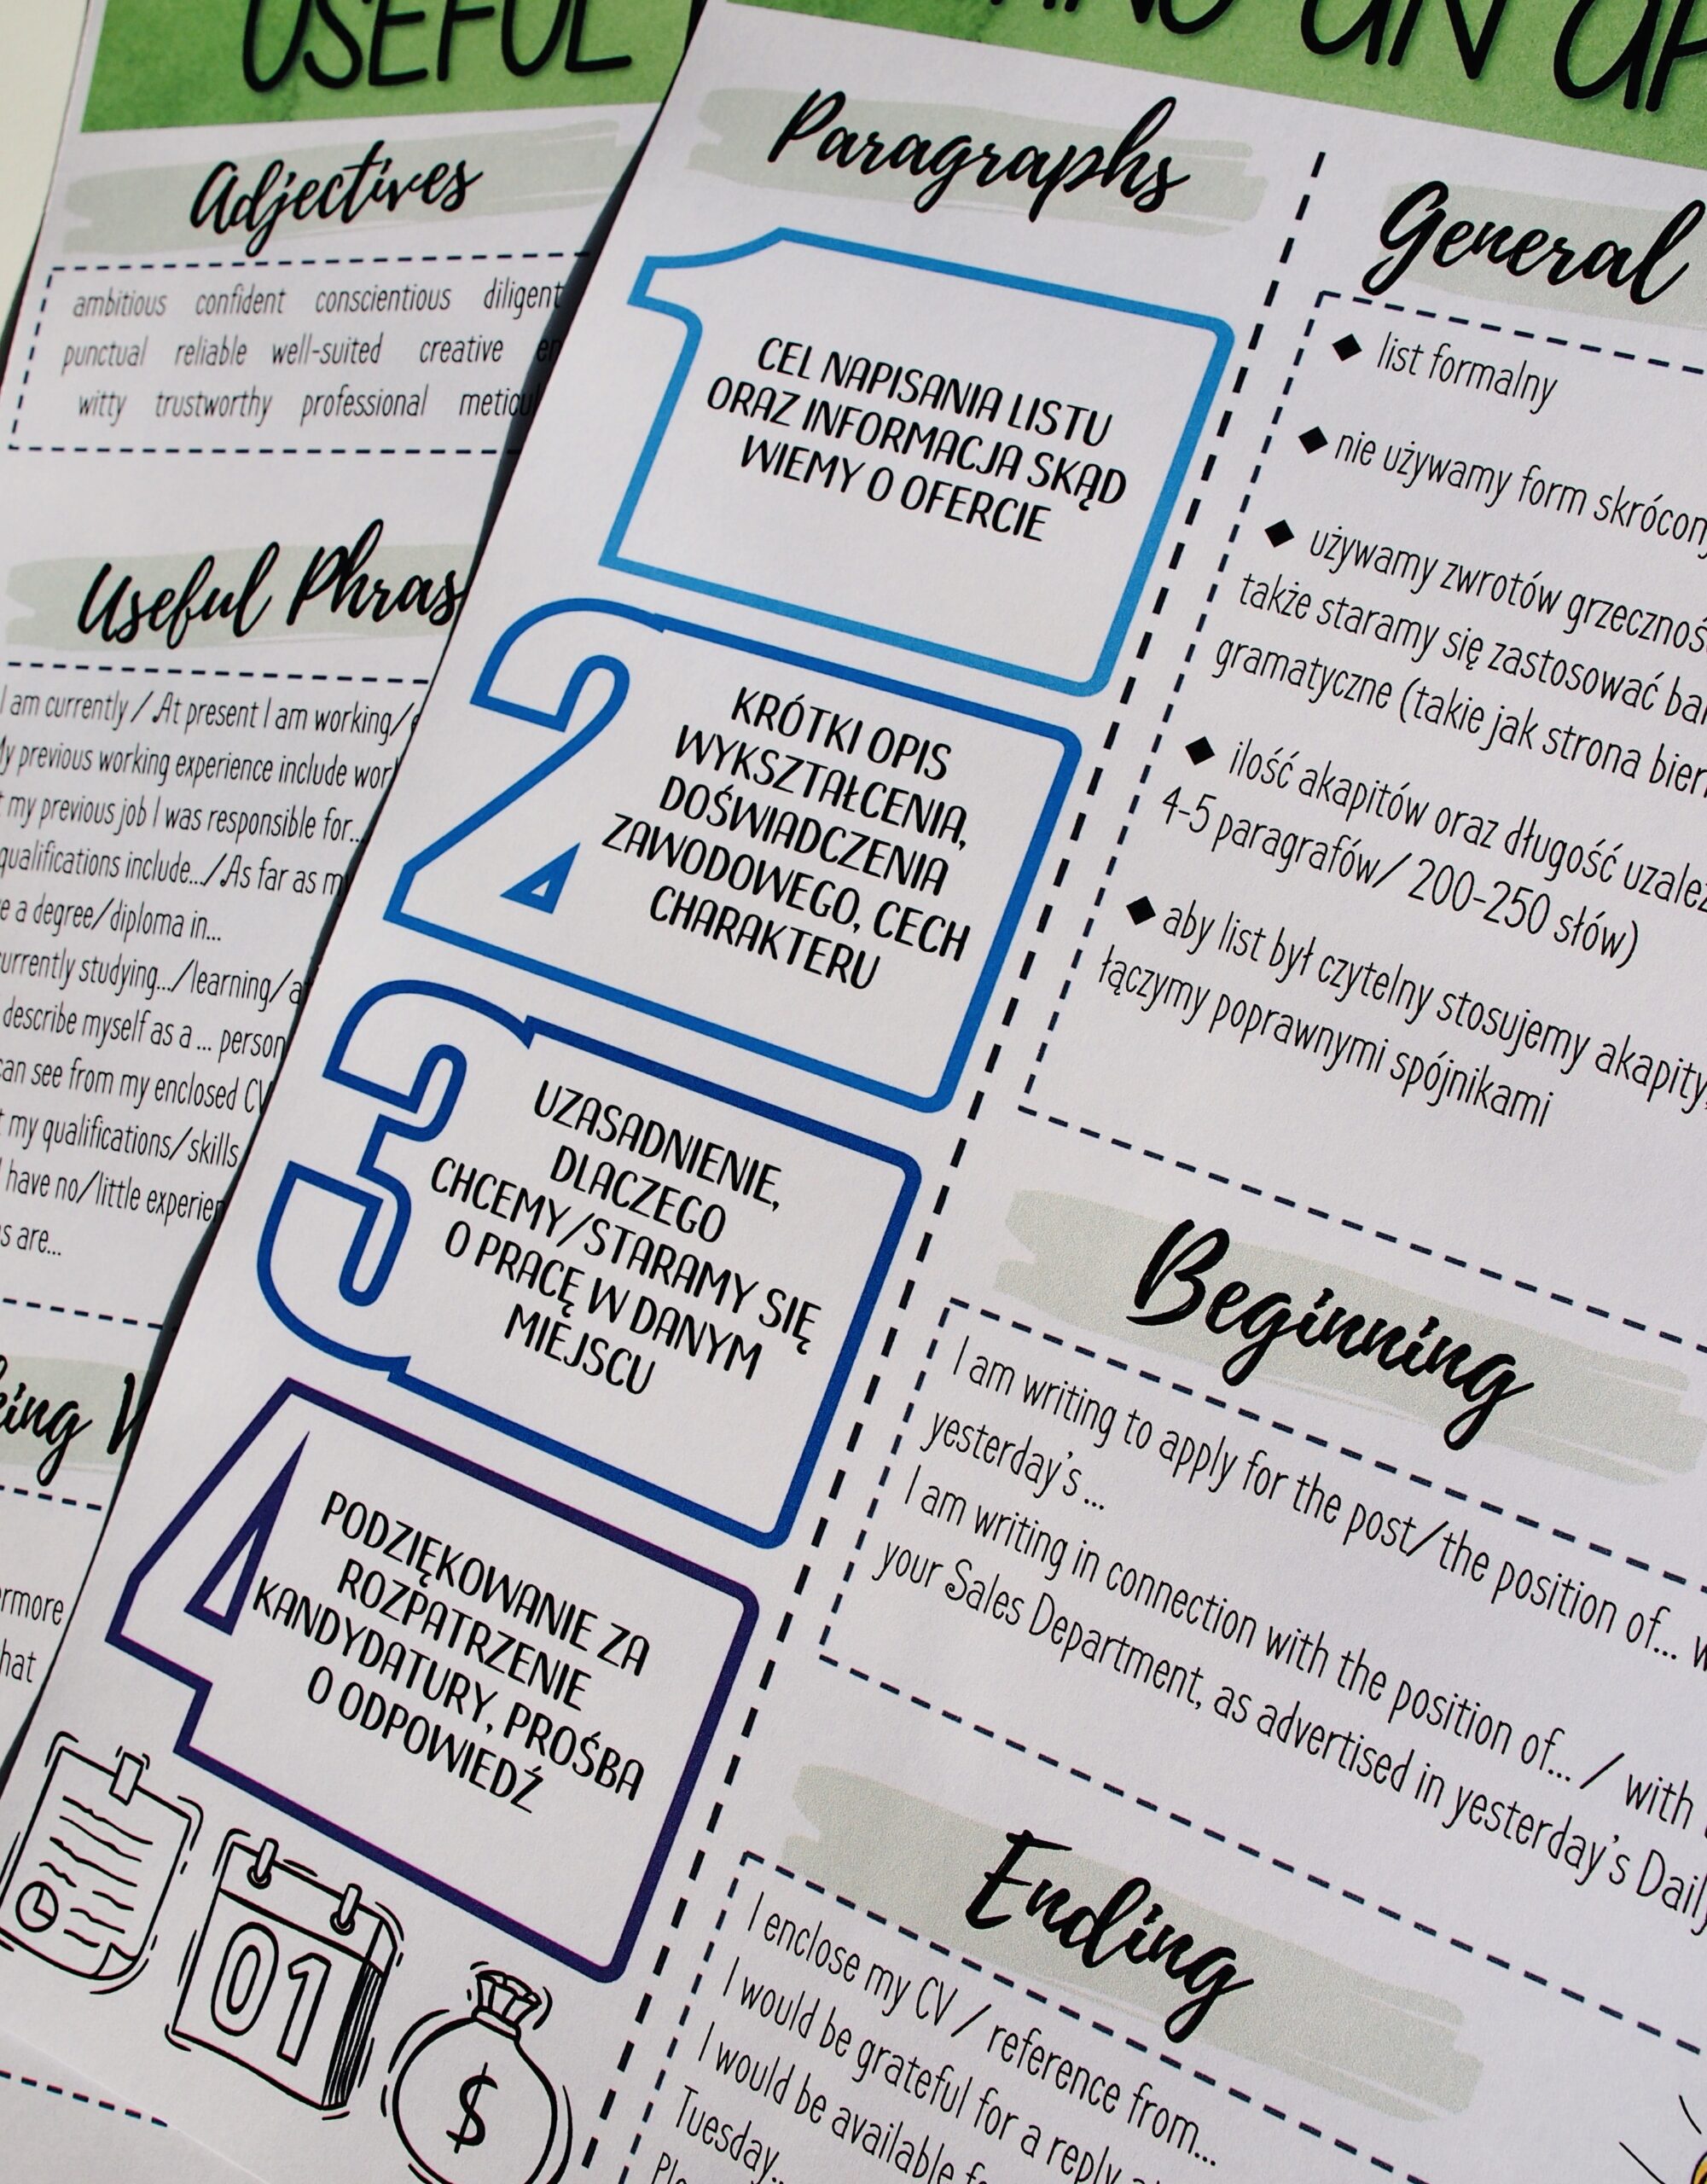 USEFUL
Adjectives
ambitious confident conscientious diligent
punctual reliable well-suited creative
witty trustworthy professional
Useful
I am currently / At present I am working/
previous working experience include
my previous job I was responsible for...
qualifications include.../As far as
a degree/diploma in...
studying.../learning/
describe myself as a ... person
can see from my enclosed CV
my qualifications/skills
I have no/little
are...
UN
Paragraphs
1
CEL NAPISANIA LISTU
ORAZ INFORMACJA SKĄD
WIEMY O OFERCIE
2
KRÓTKI OPIS
WYKSZTAŁCENIA,
DOŚWIADCZENIA
ZAWODOWEGO, CECH
CHARAKTERU
3
UZASADNIENIE,
DLACZEGO
CHCEMY/STARAMY SIĘ
O PRACĘ W DANYM
MIEJSCU
4
PODZIĘKOWANIE ZA
ROZPATRZENIE
KANDYDATURY, PROŚBA
O ODPOWIEDŹ
01
$
General
◆ list formalny
◆ nie używamy form
◆ używamy zwrotów
także staramy się zastosować
gramatyczne (takie jak strona
◆ ilość akapitów oraz długość
4-5 paragrafów/ 200-250 słów)
◆ aby list był czytelny stosujemy akapity,
łączymy poprawnymi spójnikami
Beginning
I am writing to apply for the post/the position of...
yesterday's ...
I am writing in connection with the position of... / with
your Sales Department, as advertised in yesterday's
Ending
I enclose my CV / reference from...
I would be grateful for a reply
I would be available
Tuesday...